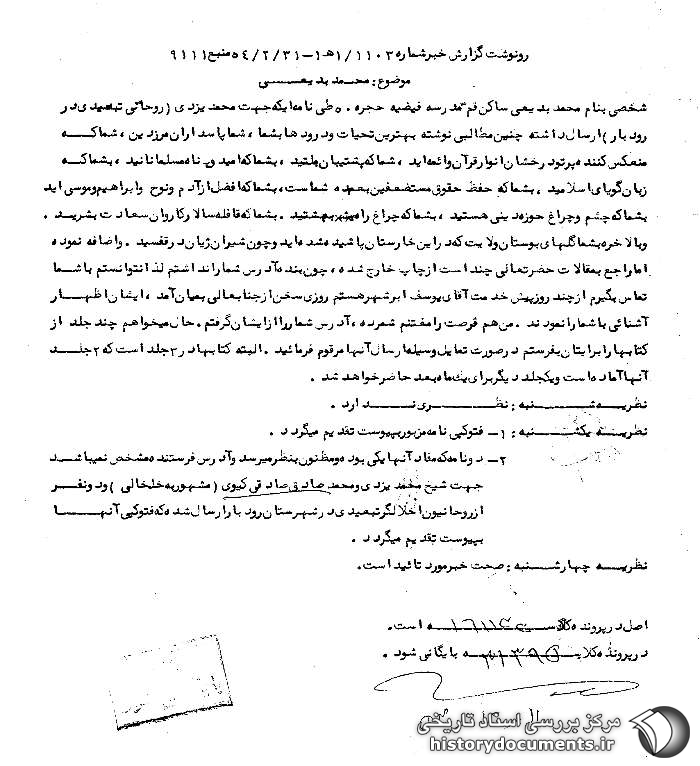 رونوشت گزارش خبر شماره ۱۱۰۳/۱ه‍۱-۳۱/۲/۵۴ منبع ۹۱۱۱
موضوع: محمد بدیعی
شخصی بنام محمد بدیعی ساکن قم مدرسه فیضیه حجره ۵ طی نامه ایکه جهت محمد یزدی (روحانی تبعیدی در
رودبار) ارسال داشته چنین مطالبی نوشته بهترین تحیات و درودها بشما، شما پاسداران مرز دین، شما که
منعکس کننده پرتو درخشان انوار قرآن و ائمه اید، شما که پشتیبان ملتید، بشما که امید و پناه مسلمانانید، بشما که
زبان گویای اسلامید، بشما که حفظ حقوق مستضعفین بعهده شماست، بشما که افضل از آدم و نوح و ابراهیم و موسی اید
بشما که چشم و چراغ حوزه دینی هستید، بشما که چراغ بهشتید. بشما که قافله سالار کاروان سعادت بشرید.
و بالاخره بشما گلهای بوستان ولایت که در این خارستان پاشیده شده اید و چون شیران ژیان در قفسید. و اضافه نموده
اما راجع بمقالات حضرتعالی چند است از چاپ خارج شده، چون بنده آدرس شما را نداشتم لذا نتوانستم با شما
تماس بگیرم از چند روز پیش خدمت آقای یوسف ابرشهر هستم روزی سخن از جنابعالی بمیان آمد، ایشان اظهار
آشنائی با شما را نمودند. من هم فرصت را مغتنم شمرده، آدرس شما را از ایشان گرفتم. حال میخواهم چند جلد از
کتابها را برایتان بفرستم در صورت تمایل وسیله ارسال آنها مرقوم فرمائید. البته کتابها در ۳ جلد است که ۲ جلد
آنها آماده است و یکجلد دیگر برای یک ماه بعد حاضر خواهد شد.
نظریه شنبه: نظری ندارد.
نظریه یکشنبه: ۱- فتوکپی نامه مزبور بپیوست تقدیم میگردد.
۲- دو نامه که مفاد آنها یکی بوده و مظنون بنظر میرسد و آدرس فرستنده مشخص نمیباشد
جهت شیخ محمد یزدی و محمد صادق صادقی گیوی (مشهور به خلخالی) و دو نفر
از روحانیون اخلالگر تبعیدی در شهرستان رودبار ارسال شده که فتوکپی آنها
بپیوست تقدیم میگردد.
نظریه چهارشنبه: صحت خبر مورد تائید است.
اصل در پرونده کلاسه است.
در پرونده کلاسه بایگانی شود.
مرکز بررسی اسناد تاریخی
historydocuments.ir